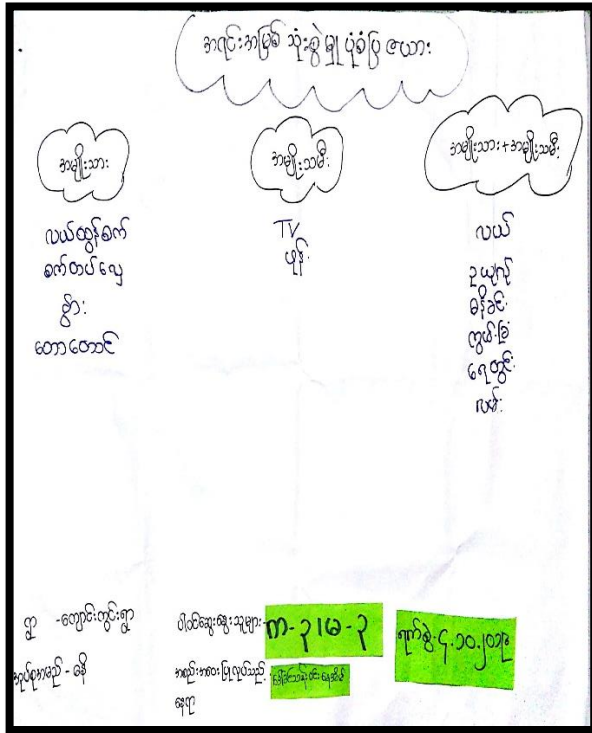 အရင်းအမြစ် သုံးစွဲမှု ပုံစံပြ ဇယား
အမျိုးသား
လယ်ထွန်စက်
စက်တပ်လှေ
နွား
တောတောင်
အမျိုးသမီး
TV
ဖုန်း
အမျိုးသား + အမျိုးသမီး
လယ်
ဥယျာဉ်
ဓနိခင်း
ကွမ်းခြံ
ရေတွင်း
လမ်း
ရွာ - ကျောင်းကွင်းရွာ
အုပ်စုအမည် - ဓနိ
ပါဝင်ဆွေးနွေးသူများ - က - ၃၊ မ - ၃
အစည်းအဝေးပြုလုပ်သည့်
နေရာ
ရက်စွဲ - ၄.၁၀.၂၀၁၉